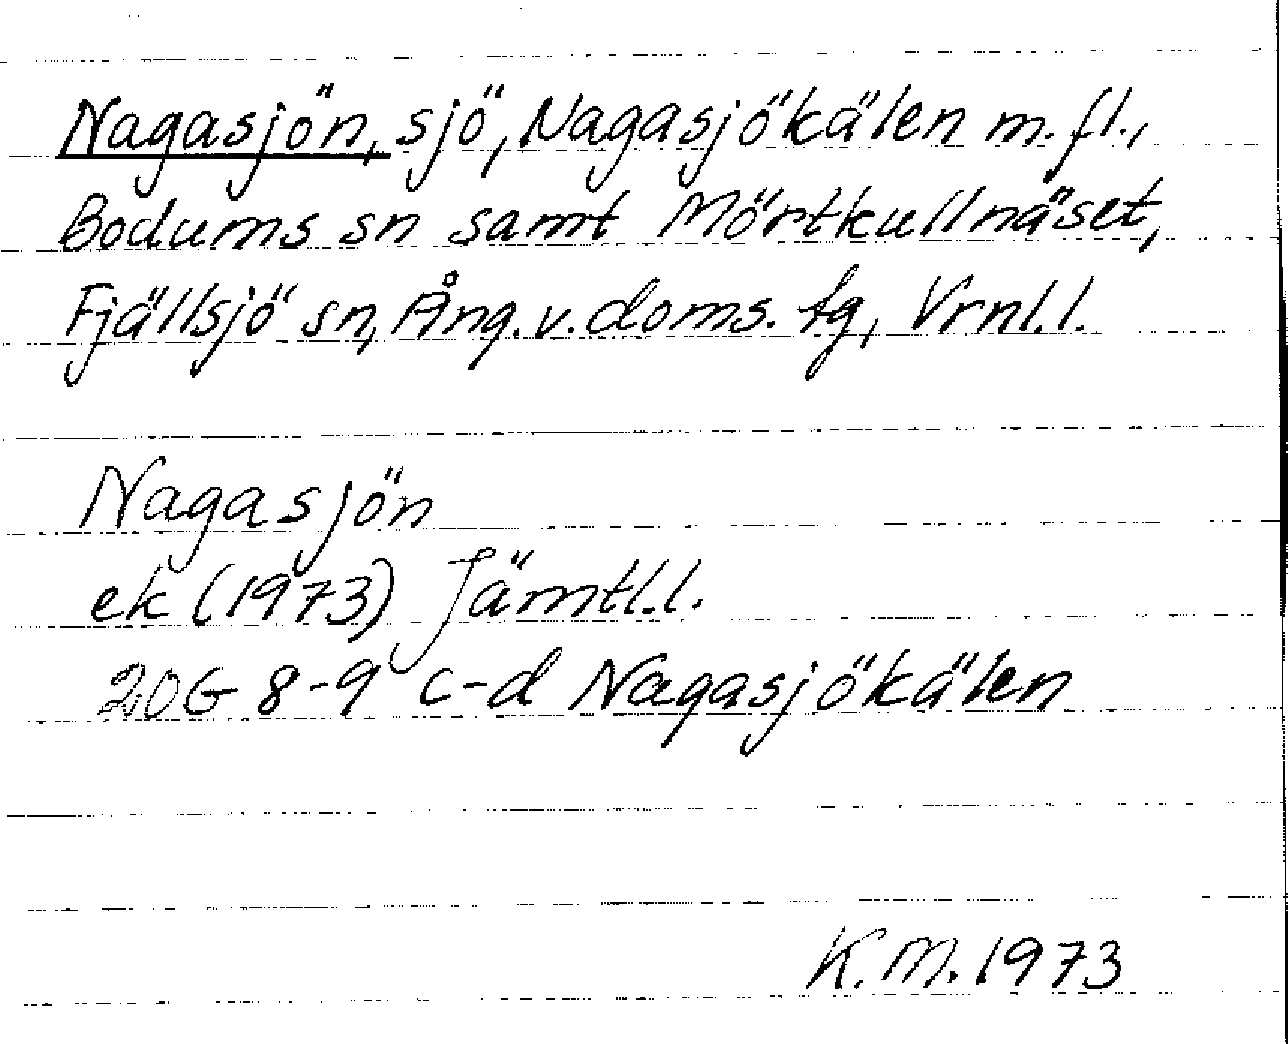 Nagasjön, sjö, Nagasjökälen m. fl.,
Bodums sn samt Mörtkullnäset,
Fjällsjö sn, Ång. v. doms. tg, Vrnl. l.
Nagasjön
ek (1973) Jämtl. l.
20G 8-9 c-d Nagasjökälen
K. M. 1973